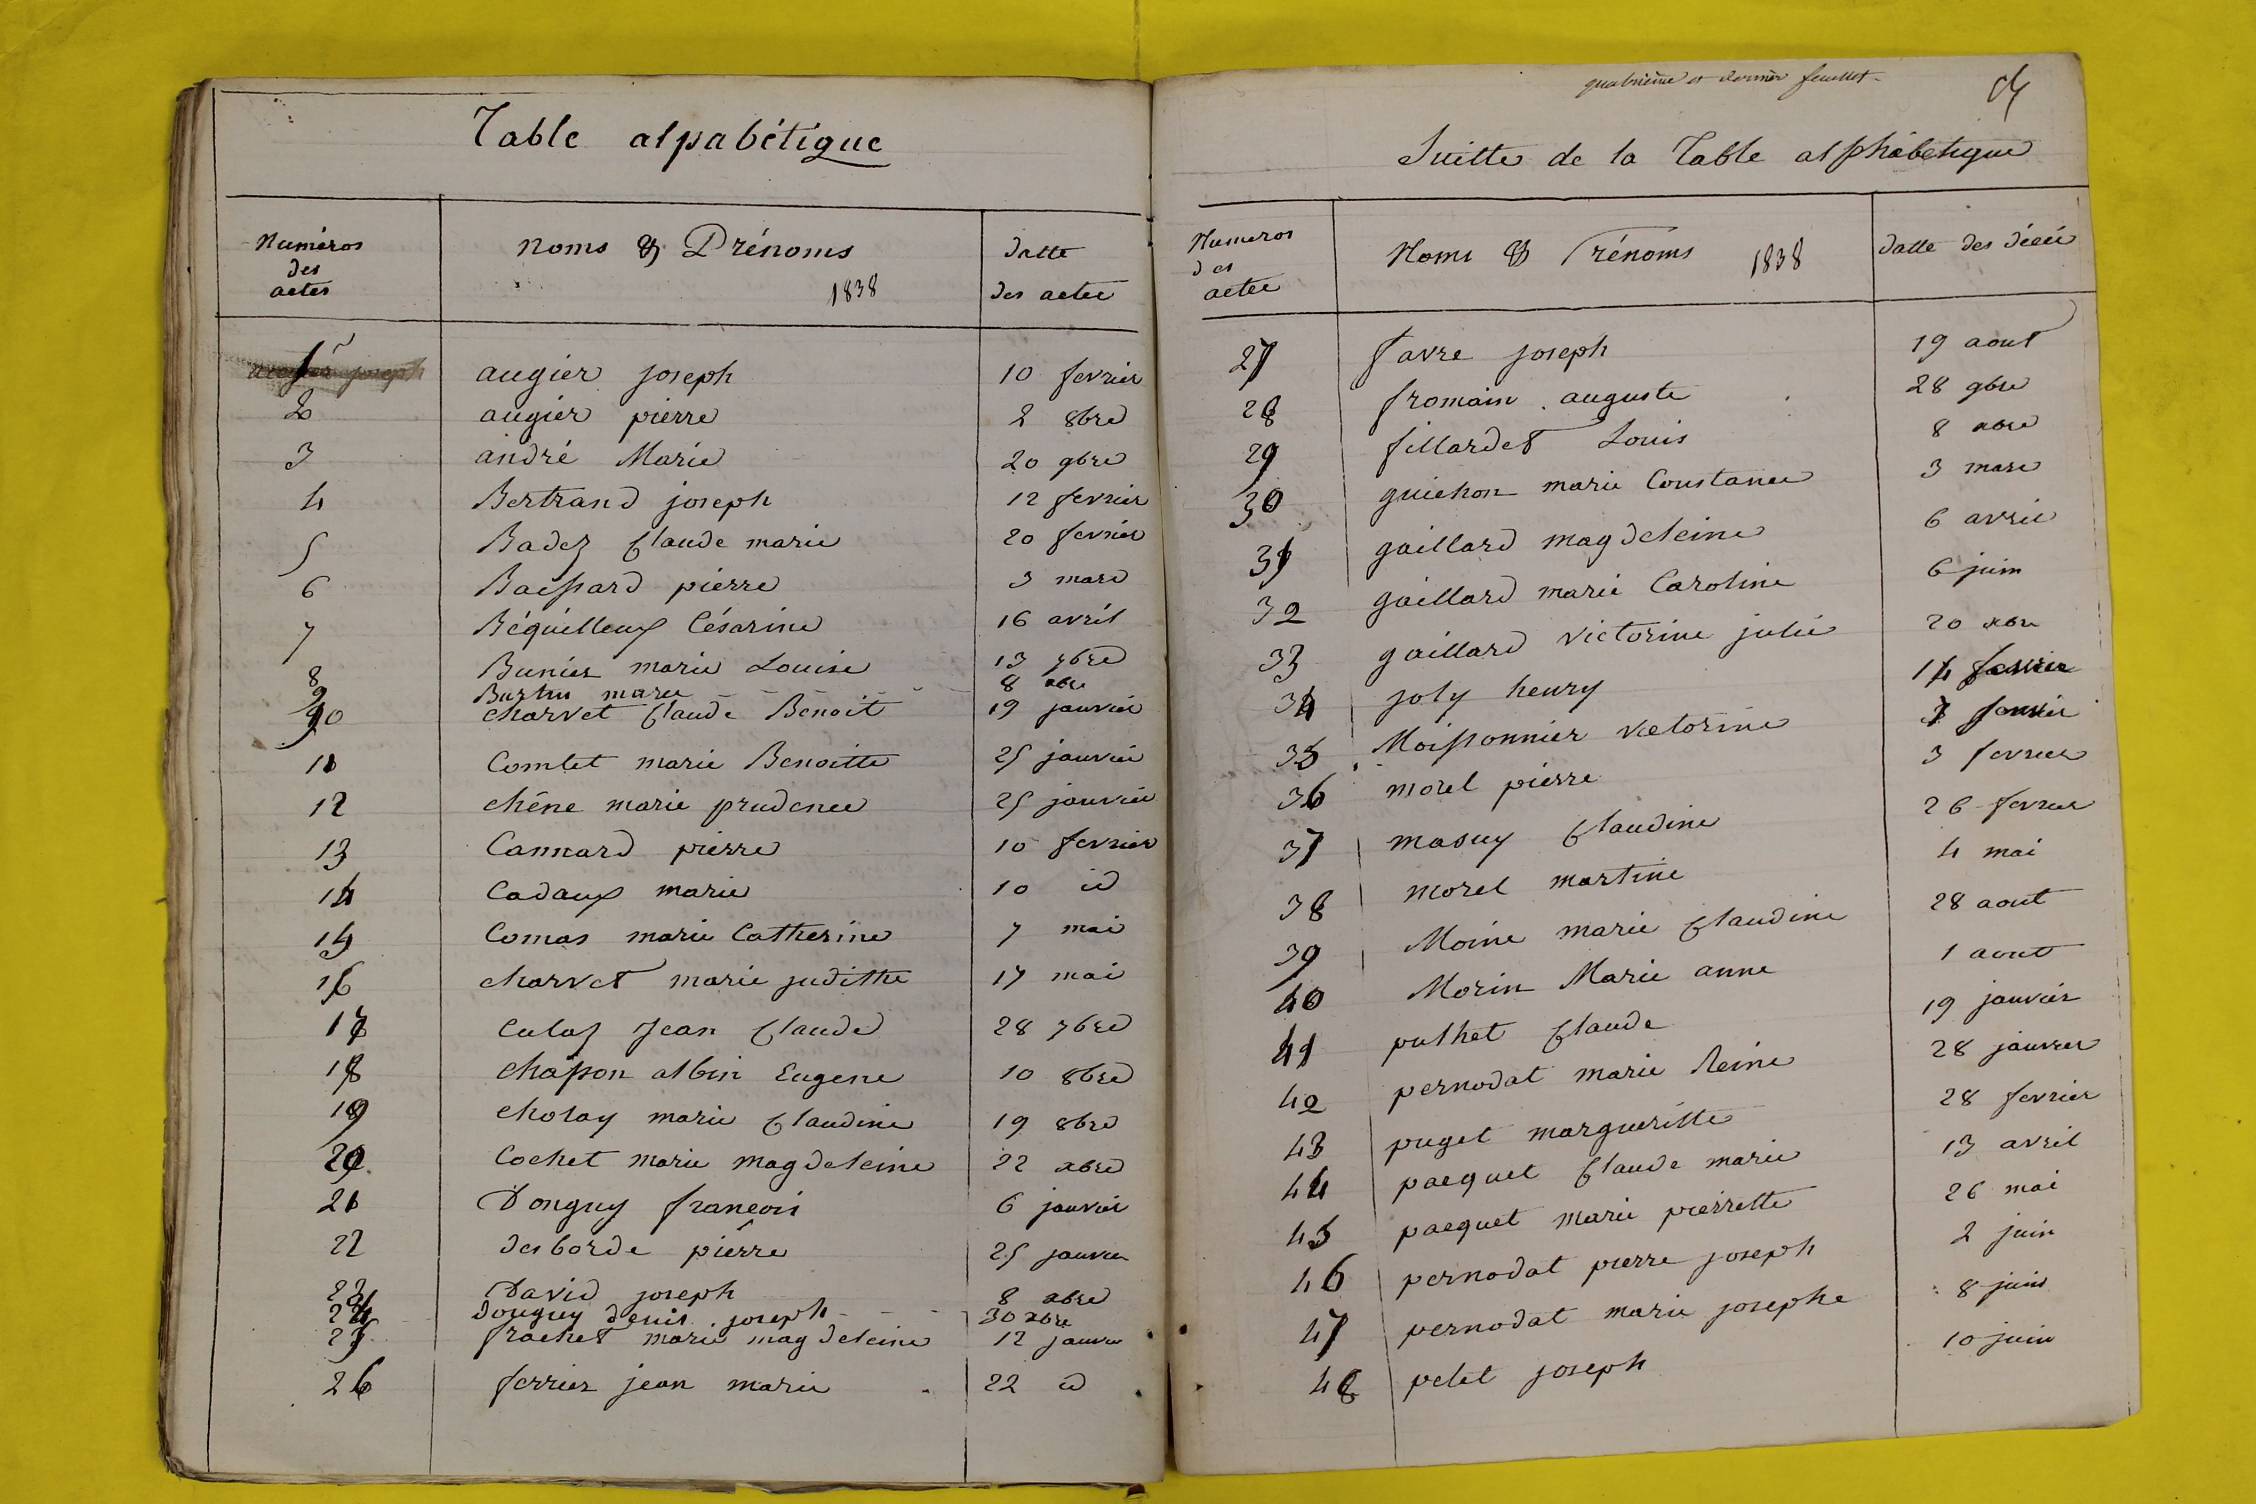 Table alpabétique
Numéros des actes | Noms & Prénoms 1838 | datte des actee
1er | augier joseph | 10 fevrier
2 | augier pierre | 2 8bre
3 | andré Marie | 20 9bre
4 | Bertrand joseph | 12 fevrier
5 | Badez Claude marie | 20 fevrier
6 | Baissard pierre | 3 mars
7 | Béquilleux Césarine | 16 avril
8 | Bunier marie Louise | 13 7bre
9 | marie | 8 xbre
10 | charvet Claude Benoit | 19 janvier
11 | Comtet marie Benoitte | 25 janvier
12 | chêne marie prudence | 25 janvier
13 | Cannard pierre | 10 fevrier
14 | Cadaux marie | 10 id
15 | Comas marie Catherine | 7 mai
16 | charvet marie judithe | 17 mai
17 | Culaz Jean Claude | 28 7bre
18 | chasson albin Eugene | 10 8bre
19 | cholay marie Claudine | 19 8bre
20 | Cochet marie magdeleine | 22 xbre
21 | Donguy françois | 6 janvier
22 | desborde pierre | 25 janvier
23 | David joseph | 8 xbre
24 | Douguy denis joseph | 30 xbre
25 | frachet marie magdeleine | 12 janvier
26 | ferrier jean marie | 22 id
quatrième et dernier feuillet
Suitte de la Table alphabetique
Numeros des actee | Noms & Prénoms 1838 | datte des décés
27 | favre joseph | 19 aout
28 | fromain auguste | 28 9bre
29 | fillardet Louis | 8 xbre
30 | guichon marie Constance | 3 mars
31 | gaillard magdeleine | 6 avril
32 | gaillard marie Caroline | 6 juin
33 | gaillard victorine julie | 20 xbre
34 | joly henry | 14 fevrier
35 | Moissonnier victorine | fevrier
36 | morel pierre | 3 fevrier
37 | masuy Claudine | 26 fevrier
38 | morel martine | 4 mai
39 | Moine marie Claudine | 28 aout
40 | Morin Marie anne | 1 aout
41 | puthet Claude | 19 janvier
42 | pernodat marie Reine | 28 janvier
43 | puget margueritte | 28 fevrier
44 | pacquet Claude marie | 13 avril
45 | pacquet marie pierrette | 26 mai
46 | pernodat pierre joseph | 2 juin
47 | pernodat marie josephe | 8 juin
48 | petet joseph | 10 juin